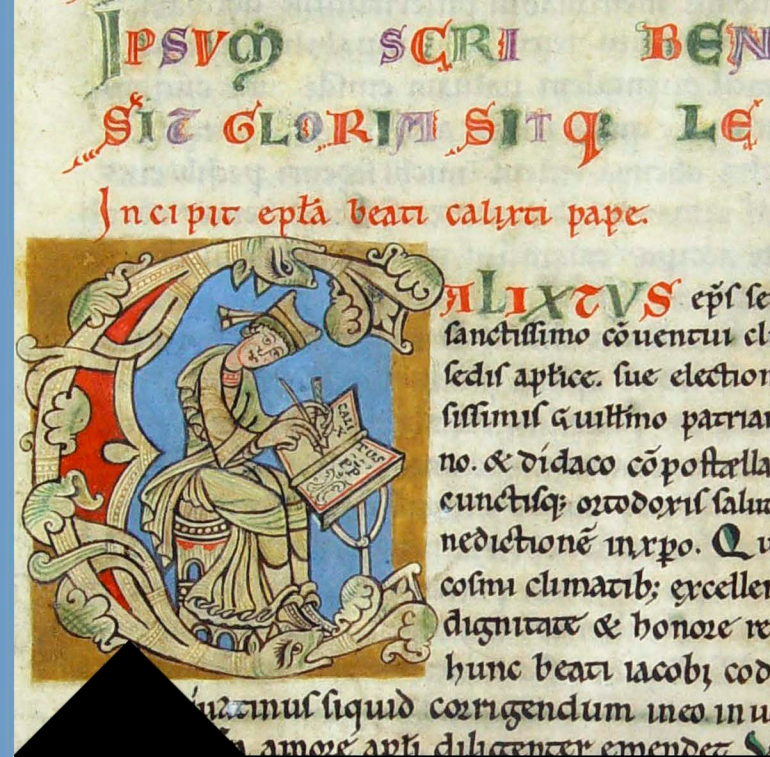 IPSVM SCRI BEN
SIT GLORIA SIT Q: LE
Incipit epła beati calixti pape.
CALIXTVS ep̃s se
sanctissimo cõuentui cl
sedis aplice. sue election
sissimis Guillmo patriar
no. & didaco cõpostella
cunctisq; ortodoxis salut
nedictionẽ in xp̃o. Qu
cosmi climatib; exceller
dignitate & honore re
hunc beati iacobi cod
siquid corrigendum in eo inu
amore apli diligenter emendet